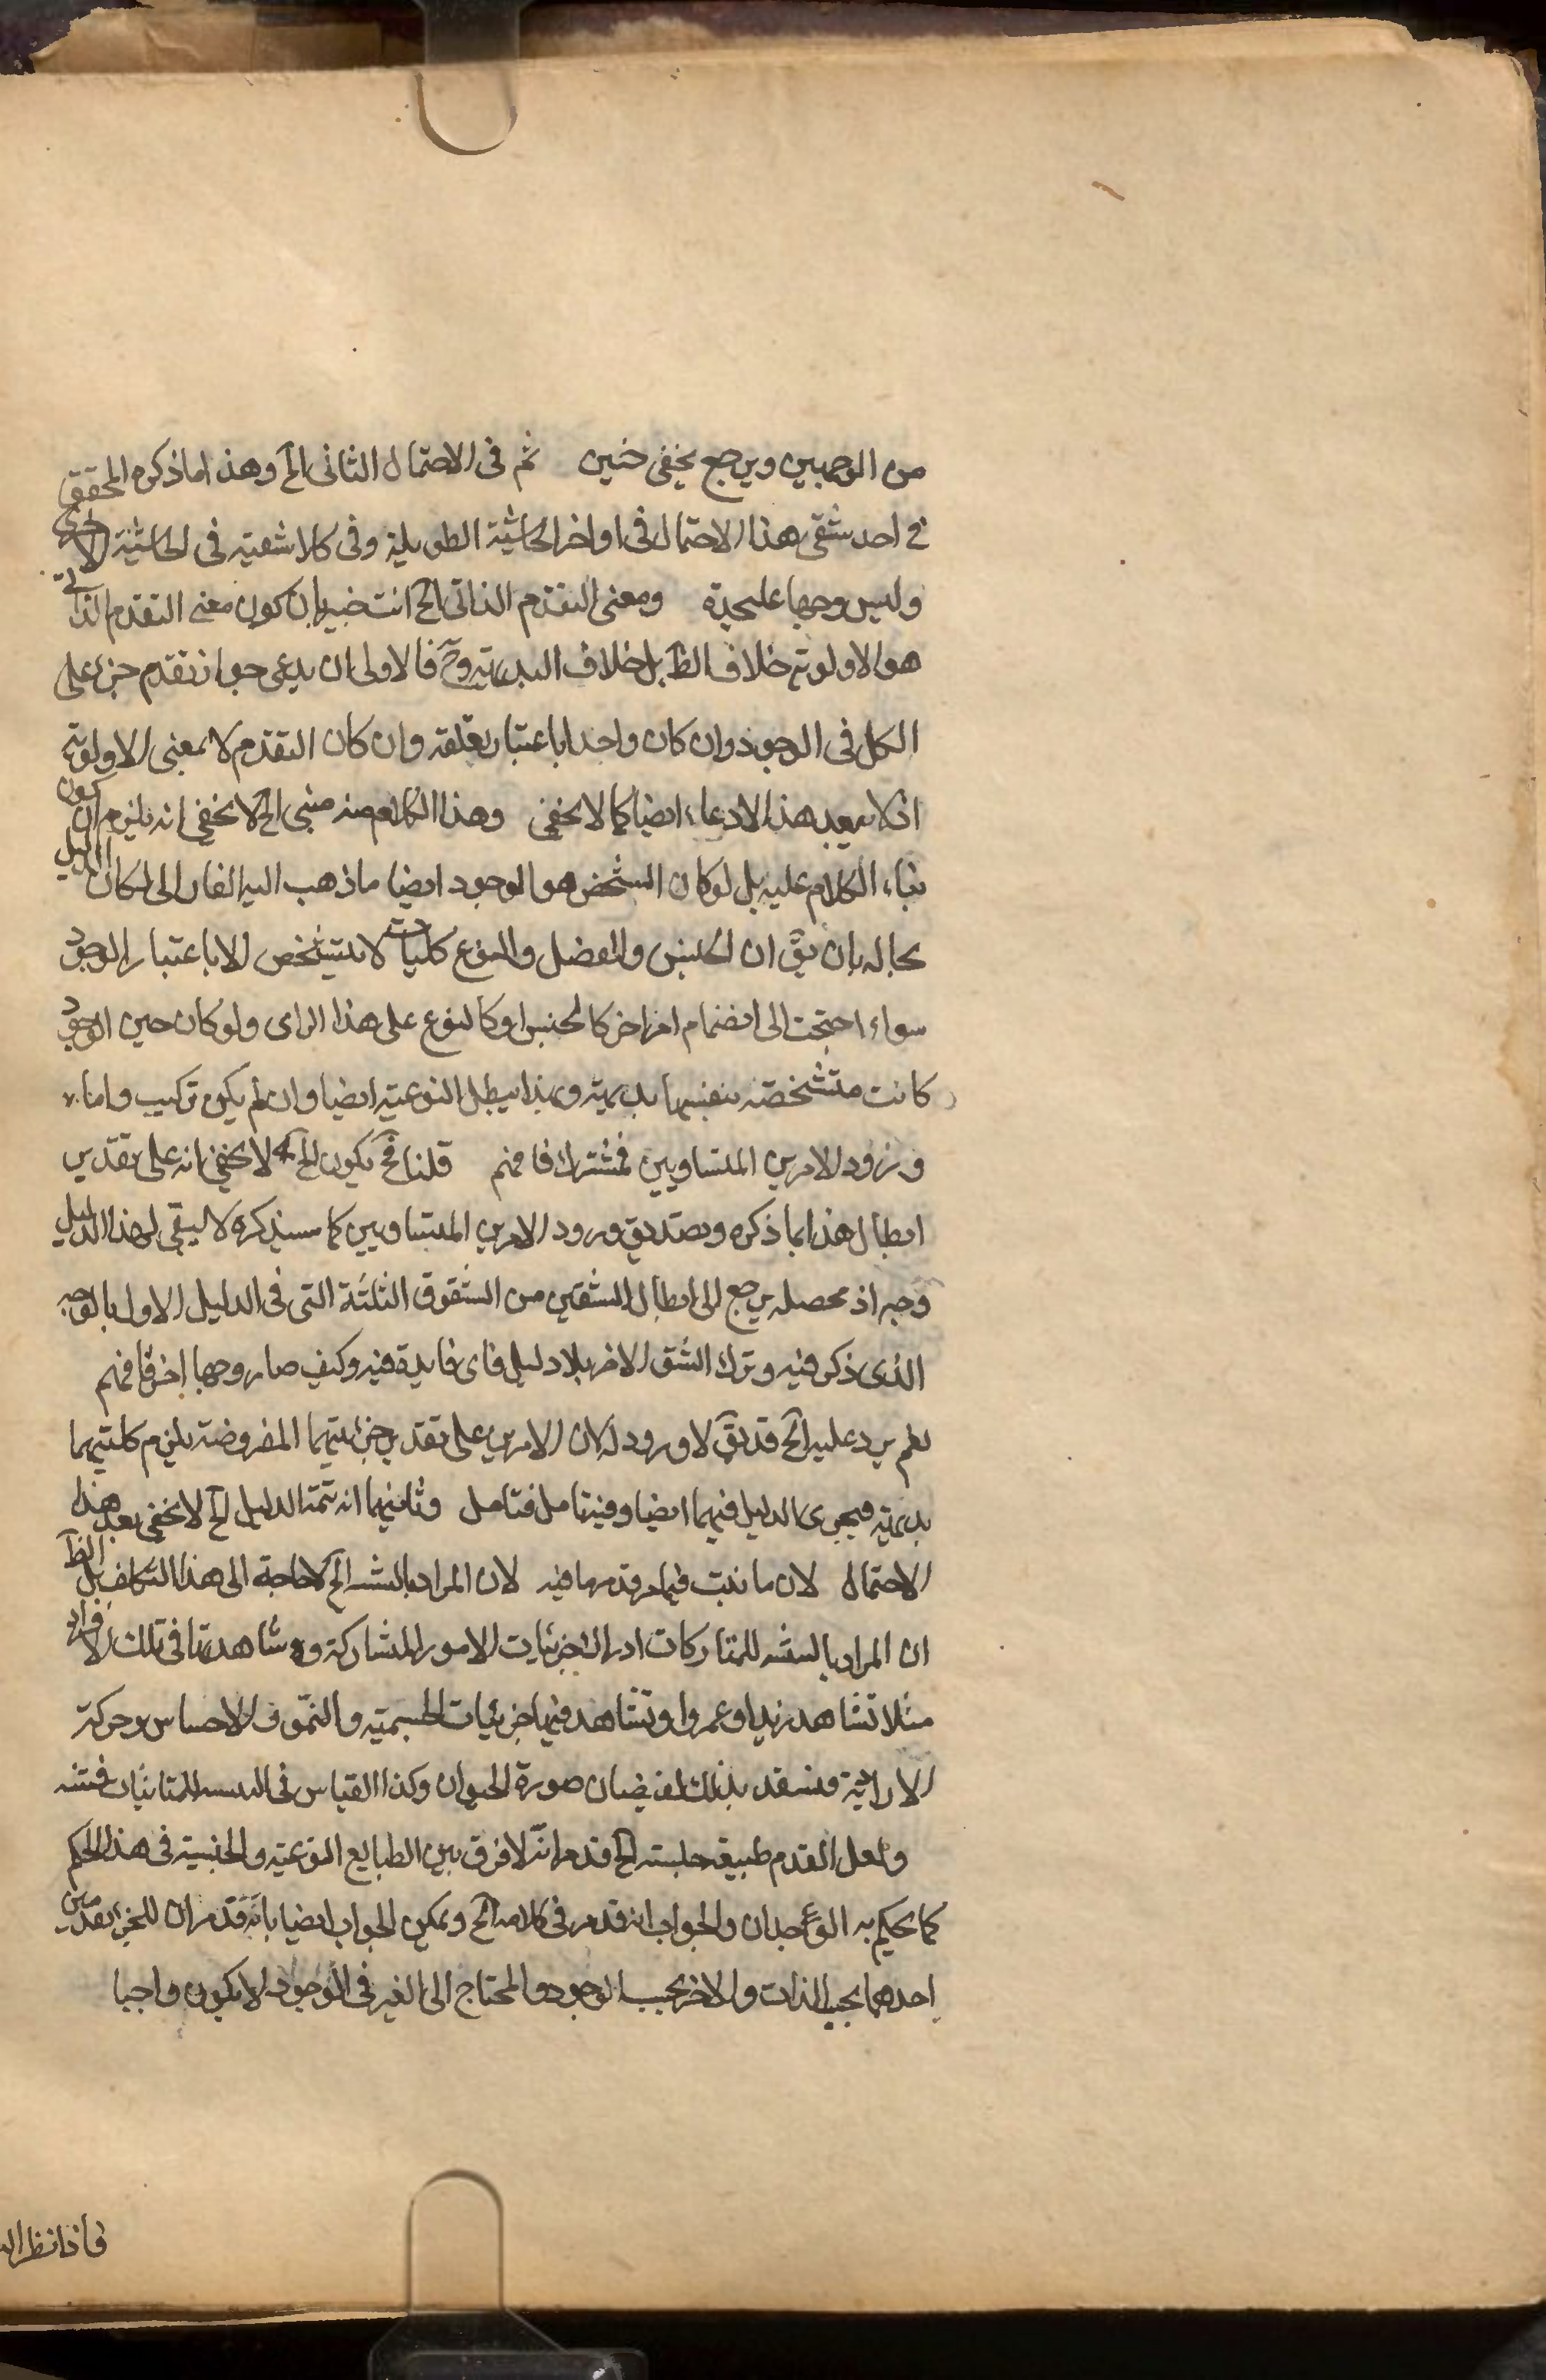 من الوجهين ويرجع بخفى حنين ثم فى الاحتمال الثانى الخ وهذا ما ذكره المحقق
فى احد شقى هذا الاحتمال فى اواخر الحاشية الطويلة وفى كلا شقيه فى الحاشية الاخرى
وليس وجها عليحدة ومعنى التقدم الذاتى الخ انت خبير بان كون معنى التقدم الذاتى
هو الاولوية خلاف الظ بل خلاف البديهة وح فالاولى ان يدعى جواز تقدم جزء على
الكل فى الوجود وان كان واحدا باعتبار تعلقه وان كان التقدم لا بمعنى الاولوية
اذ لا يبعد هذا الادعاء ايضا كما لا يخفى وهذا الكلام منه مبنى الخ لا يخفى انه يلزم ان يكون
بناء الكلام عليه بل لو كان الشخص هو الوجود ايضا ما ذهب اليه الفارابى لكان الدليل
بحاله بان يق ان الجنس والفصل والنوع كليات لا يتشخص الا باعتبار الوجود
سواء احتجت الى انضمام امر اخر كالجنس او كالنوع على هذا الراى ولو كان حين الوجود
كانت متشخصة بنفسها بديهة وبهذا يبطل النوعية ايضا وان لم يكن تركيب واما
ورود الامرين المتساويين فمشترك فافهم قلنا فح يكون الخ لا يخفى انه على تقدير
ابطال هذا بما ذكره وتصديق ورود الامرين المتساويين كما سيذكره لا يبقى لهذا الدليل
وجه اذ محصله يرجع الى ابطال الشقين من الشقوق الثلثة التى فى الدليل الاول بالوجه
الذى ذكر فيه وترك الشق الاخر بلا دليل فاى فايدة فيه وكيف صار وجها اخر فافهم
نعم يرد عليه الخ قد يق لا ورود له لان الامرين على تقدير جزئيتهما المفروضة يلزم كليتهما
بديهة فيجرى الدليل فيهما ايضا وفيه تامل فتامل وثانيهما انه تتمة الدليل الخ لا يخفى بعد هذا
الاحتمال لان ما نبت فيما مر قد مر ما فيه لان المراد بالتنبه الخ لا حاجة الى هذا التكلف بل الظ
ان المراد بالتنبه للمشاركات ادراك جزئيات الامور المشاركة ومشاهدتها فى تلك الافراد
مثلا تشاهد زيدا وعمروا وتشاهد فيهما جزئيات الجسمية والنمو والاحساس وحركة
الارادية فتستعد بذلك لفيضان صورة الحيوان وكذا القياس فى التنبه للمتباينات فتنبه
ولعل القدم طبيعة جلسته الخ قد مر انه لا فرق بين الطبايع النوعية والجنسية فى هذا الحكم
كما يحكم به الوجدان والجواب انه قد مر فى كلامه الخ ويمكن الجواب ايضا بانه قد مر ان للجزء تقدمين
احدهما بحسب الذات والاخر بحسب الوجود والمحتاج الى الغير فى الوجود لا يكون واجبا
فاذا نظر